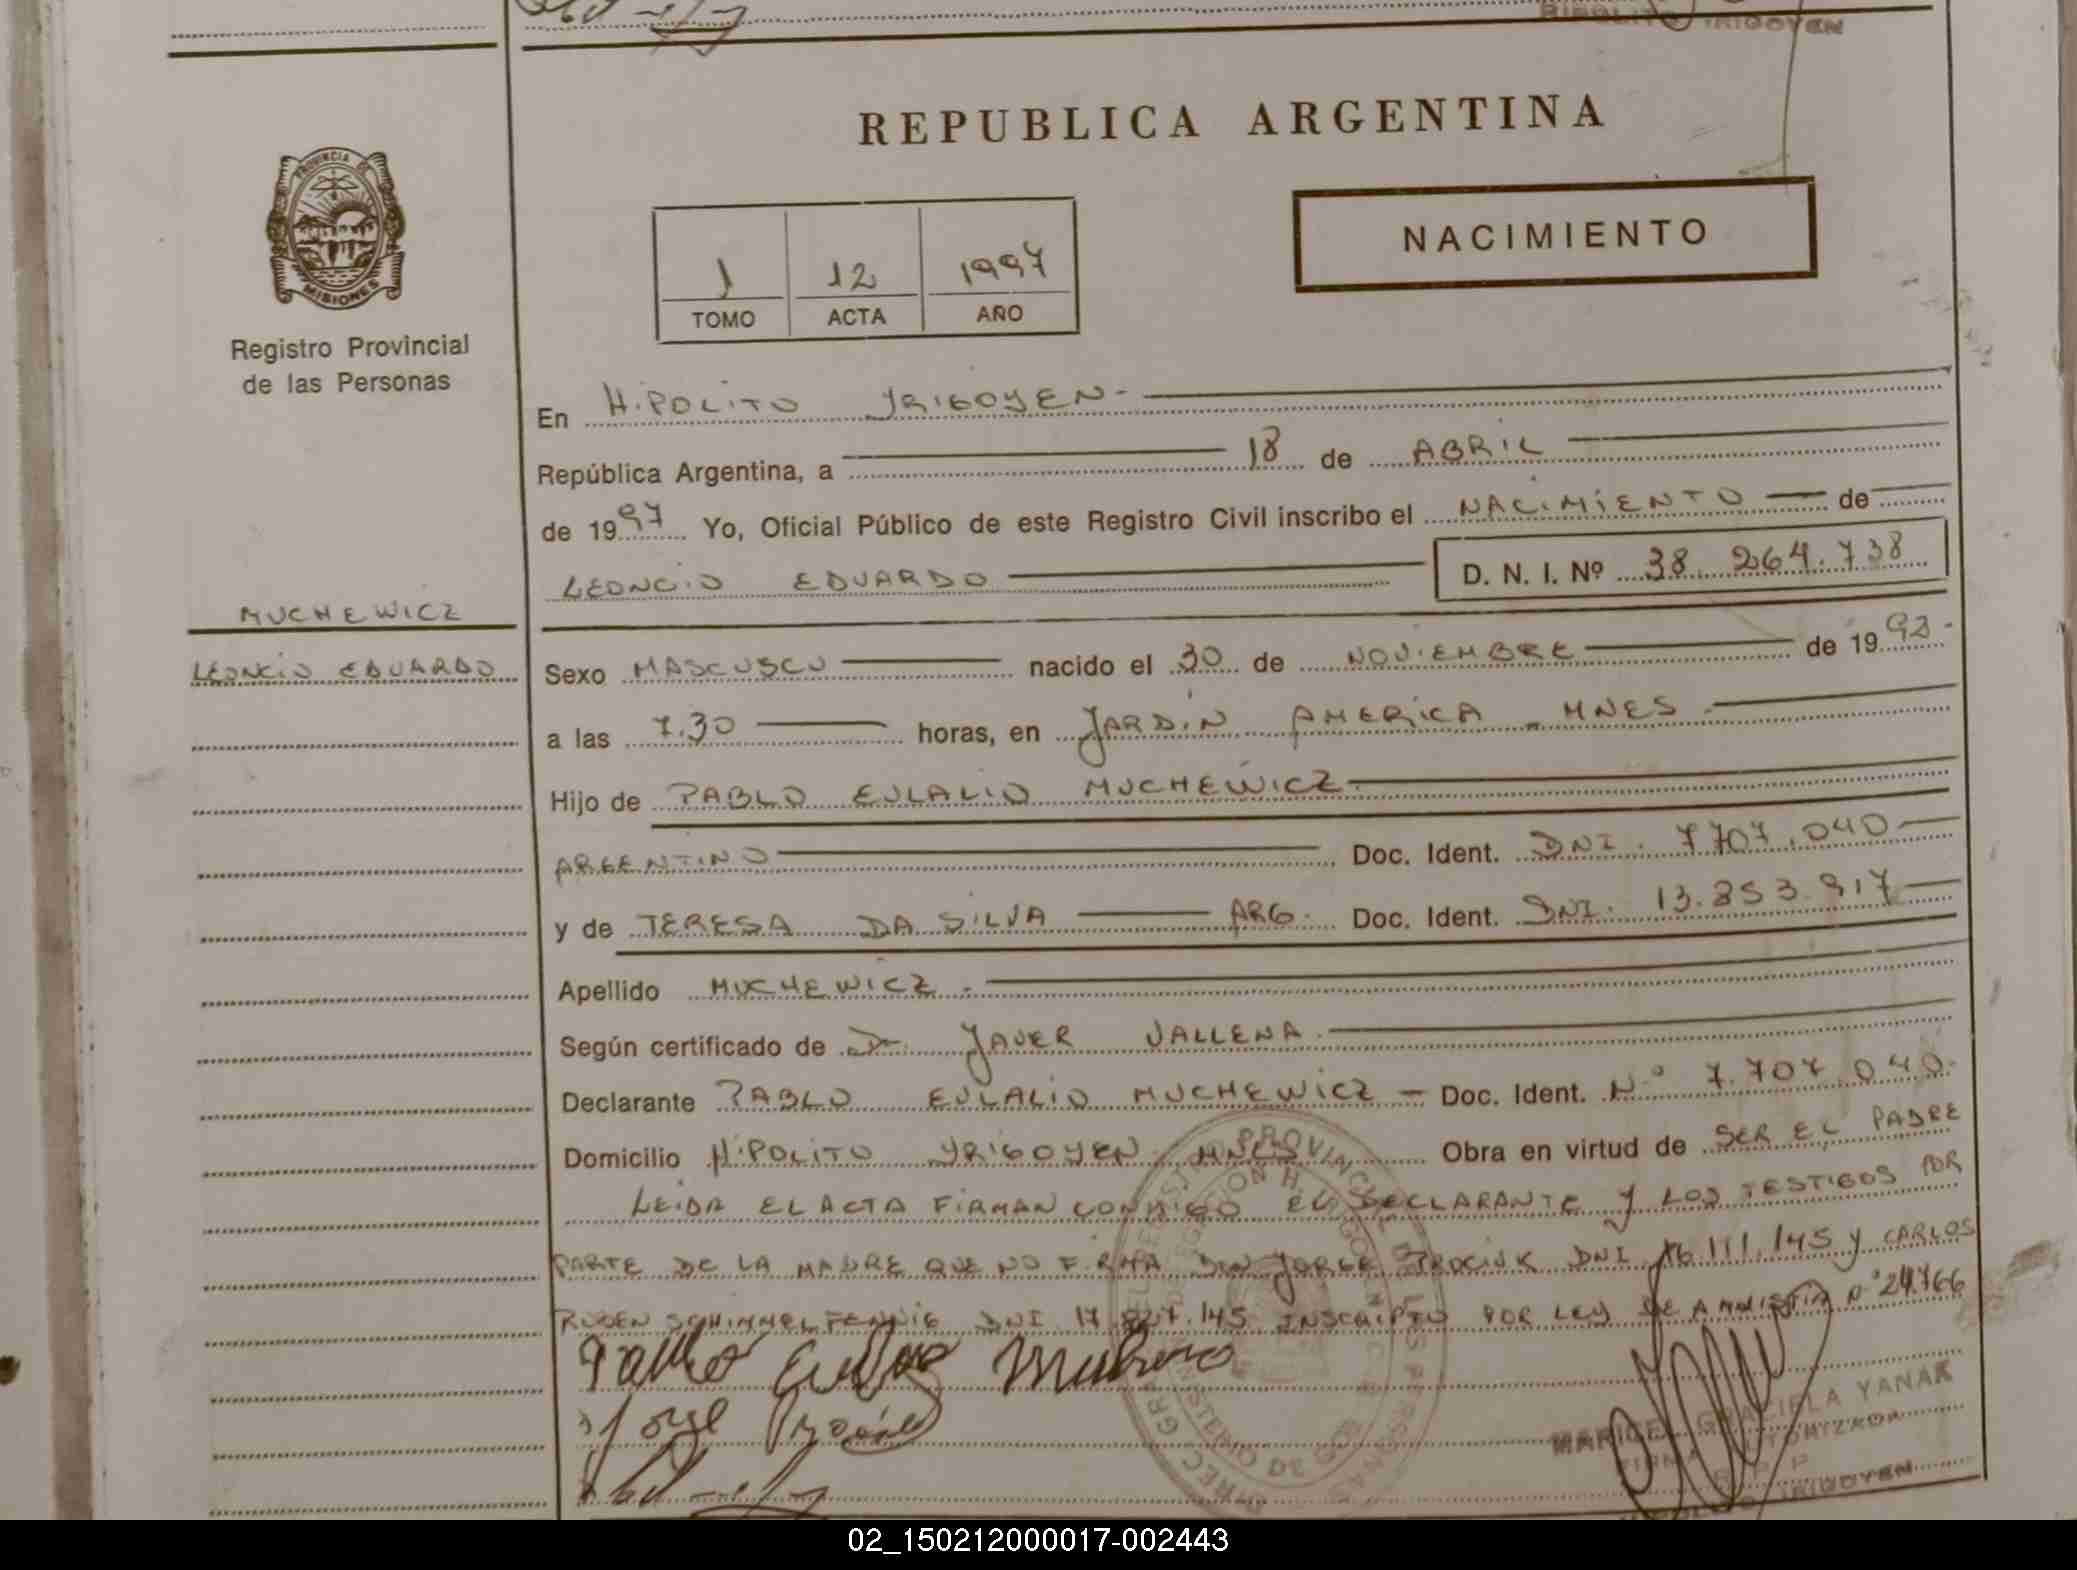 HIPOLITO IRIGOYEN
REPUBLICA ARGENTINA
PROVINCIA DE
MISIONES
Registro Provincial
de las Personas
1 12 1997
TOMO ACTA AÑO
NACIMIENTO
En HIPOLITO YRIGOYEN -
República Argentina, a 18 de ABRIL
de 1997 Yo, Oficial Público de este Registro Civil inscribo el NACIMIENTO de
LEONCIO EDUARDO D. N. I. Nº 38.264.738
MUCHEWICZ
LEONCIO EDUARDO
Sexo MASCUSCU nacido el 30 de NOVIEMBRE de 19
a las 7.30 horas, en JARDIN AMERICA - MNES -
Hijo de PABLO EULALIO MUCHEWICZ
ARGENTINO Doc. Ident. DNI. 7707.040
y de TERESA DA SILVA ARG. Doc. Ident. DNI. 13.853.917
Apellido MUCHEWICZ -
Según certificado de Dr JAVER VALLENA
Declarante PABLO EULALIO MUCHEWICZ - Doc. Ident. Nº 7.707.040
Domicilio HIPOLITO YRIGOYEN MNES Obra en virtud de SER EL PADRE
LEIDA EL ACTA FIRMAN CONMIGO EL DECLARANTE Y LOS TESTIGOS POR
PARTE DE LA MADRE QUE NO FIRMA DON JORGE PROCIUK DNI 16.111.145 Y CARLOS
RUBEN SCHIMMELFENNIG DNI 17.827.145 INSCRIPTO POR LEY DE AMNISTIA Nº 24.766
Pablo
Jorge
MARICEL GRACIELA YANAK
FIRMA AUTORIZADA
R. P. P.
HIPOLITO IRIGOYEN
02_150212000017-002443